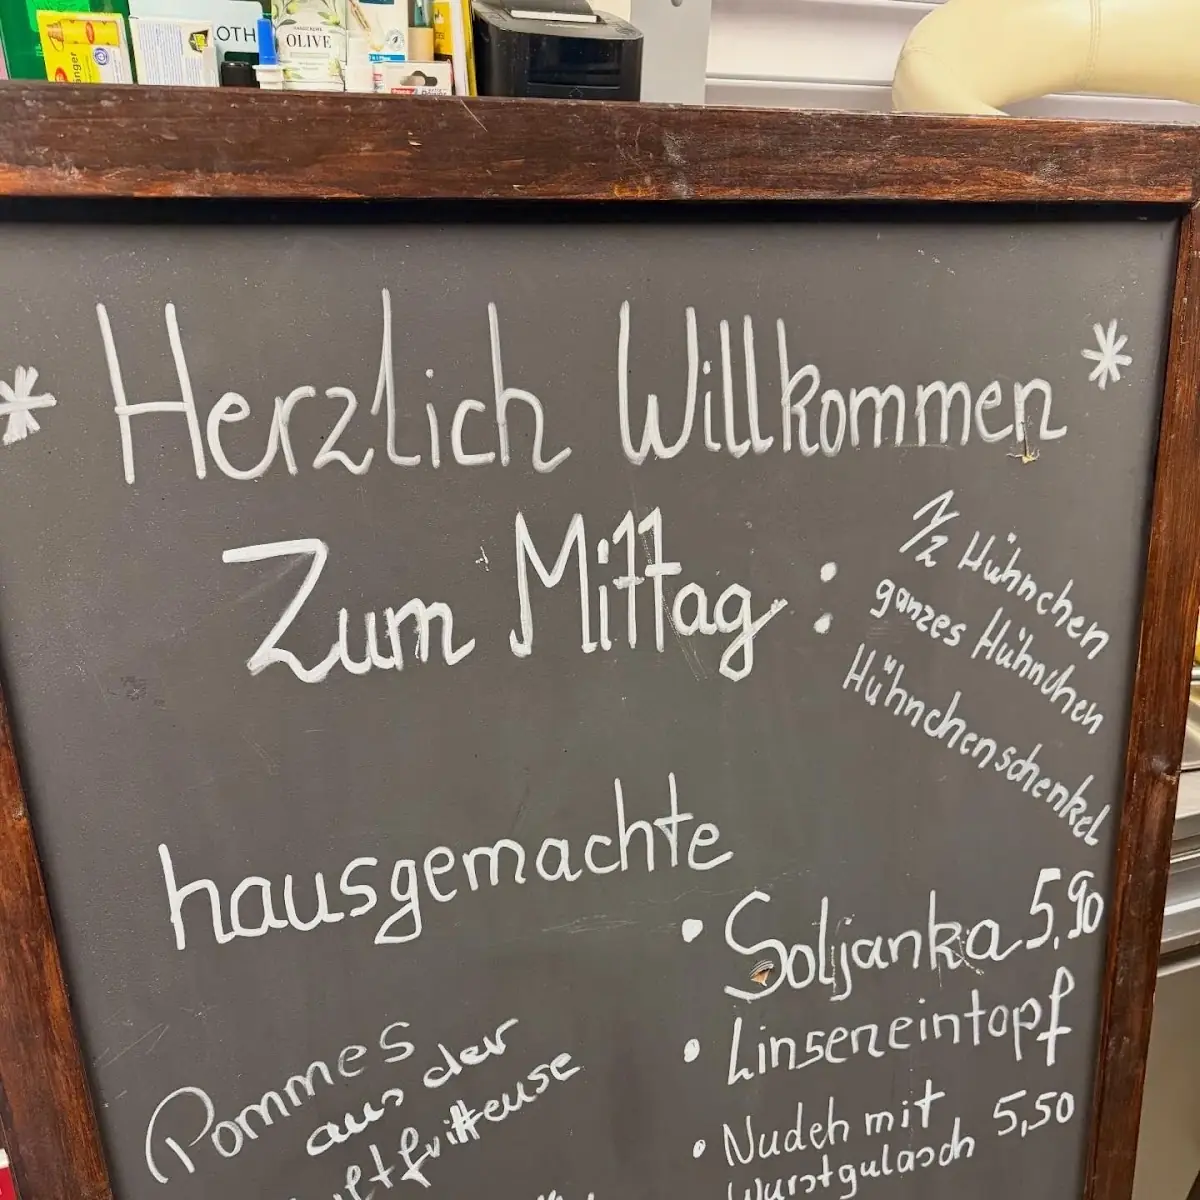 OTH
OLIVE
* Herzlich Willkommen *
Zum Mittag :
1/2 Hühnchen
ganzes Hühnchen
Hühnchenschenkel
hausgemachte
• Soljanka 5,90
• Linseneintopf
• Nudeln mit
Wurstgulasch 5,50
Pommes
aus der